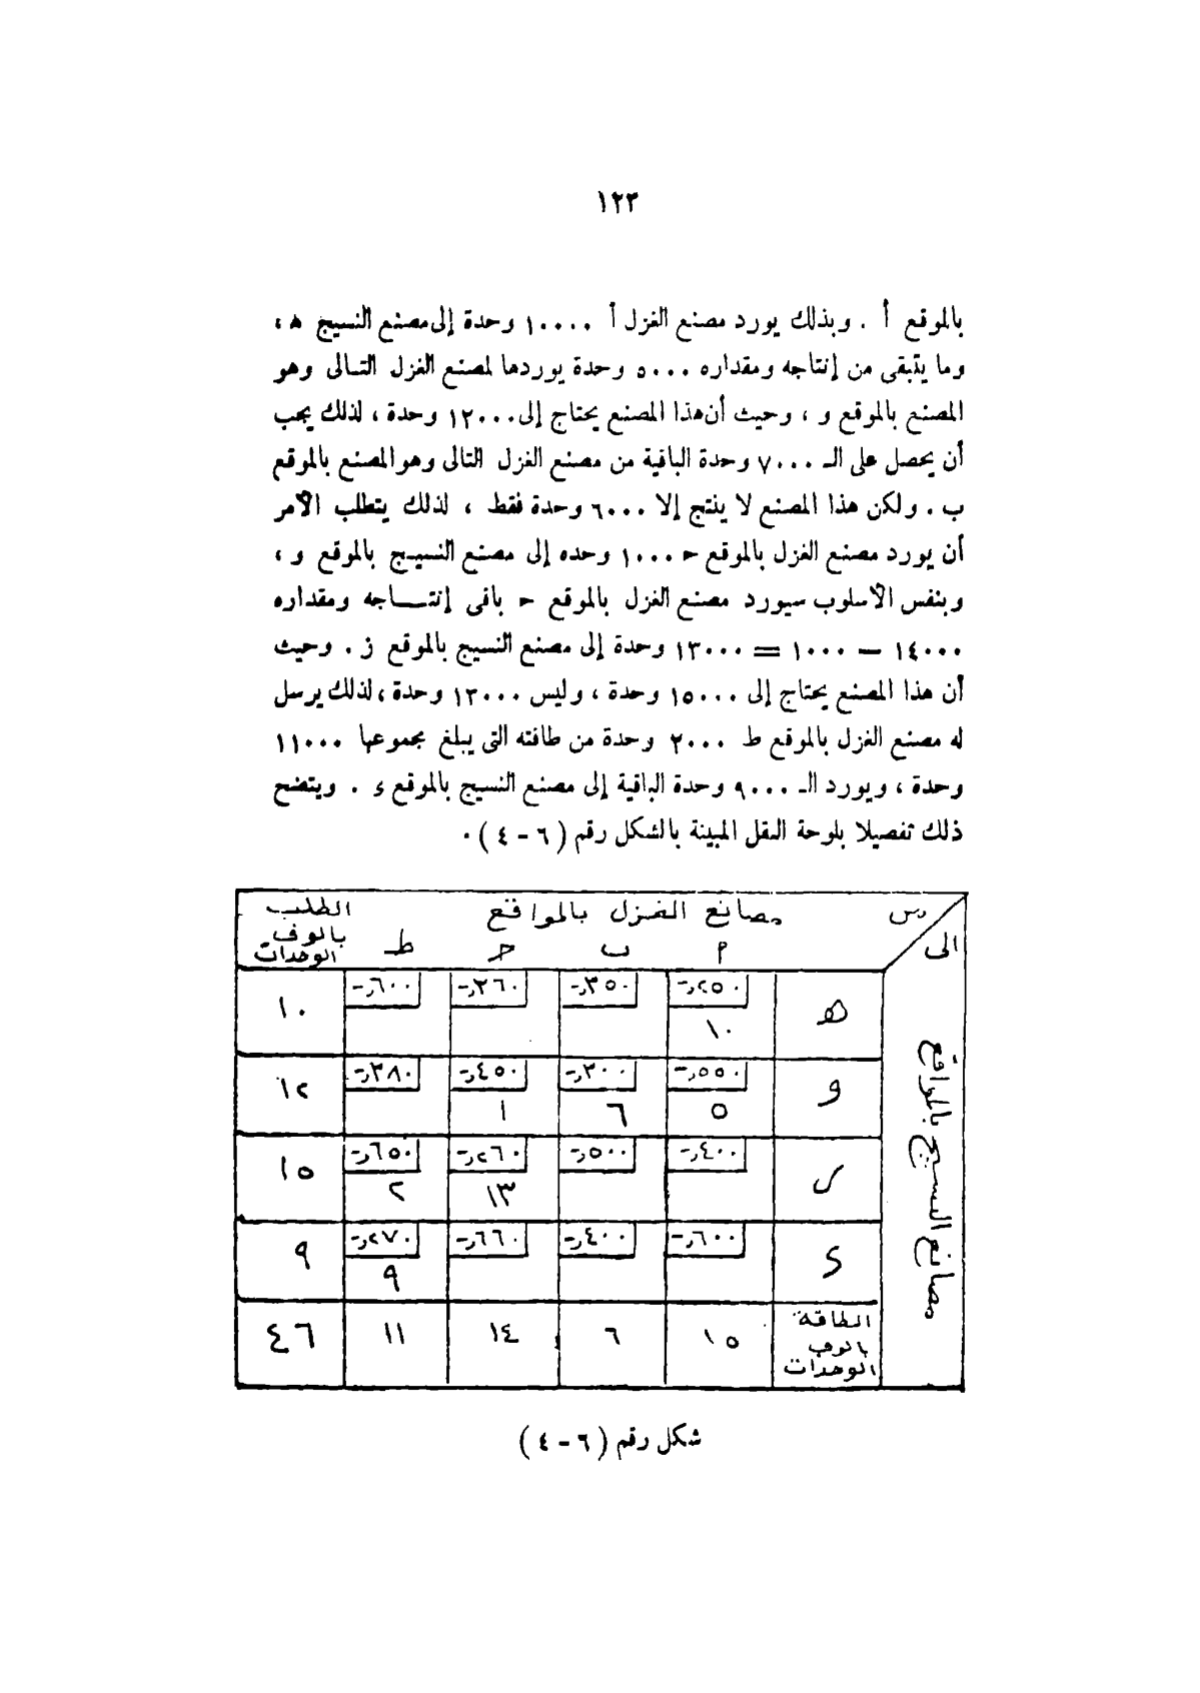 ١٢٣
بالموقع أ . وبذلك يورد مصنع الغزل أ ١٠٠٠٠ وحدة إلى مصنع النسيج ه ،
وما يتبقى من إنتاجه ومقداره ٥٠٠٠ وحدة يوردها لمصنع الغزل التالى وهو
المصنع بالموقع و ، وحيث أن هذا المصنع يحتاج إلى ١٢٠٠٠ وحدة ، لذلك يجب
أن يحصل على الـ ٧٠٠٠ وحدة الباقية من مصنع الغزل التالى وهو المصنع بالموقع
ب . ولكن هذا المصنع لا ينتج إلا ٦٠٠٠ وحدة فقط ، لذلك يتطلب الأمر
أن يورد مصنع الغزل بالموقع ح ١٠٠٠ وحده إلى مصنع النسيج بالموقع و ،
وبنفس الأسلوب سيورد مصنع الغزل بالموقع ح باقى إنتــاجه ومقداره
١٤٠٠٠ — ١٠٠٠ = ١٣٠٠٠ وحدة إلى مصنع النسيج بالموقع ز . وحيث
أن هذا المصنع يحتاج إلى ١٥٠٠٠ وحدة ، وليس ١٣٠٠٠ وحدة ، لذلك يرسل
له مصنع الغزل بالموقع ط ٢٠٠٠ وحدة من طاقته التى يبلغ مجموعها ١١٠٠٠
وحدة ، ويورد الـ ٩٠٠٠ وحدة الباقية إلى مصنع النسيج بالموقع ء . ويتضح
ذلك تفصيلا بلوحة النقل المبينة بالشكل رقم ( ٦ - ٤ ) .
من
إلى
مصانع الغزل بالمواقع
الطلب
بالوف
الوحدات
م ب ح ط
مصانع النسيج بالمواقع
ه ٢٥٠ر- ٣٥٠ر- ٣٦٠ر- ٦٠٠ر- ١٠
١٠
و ٥٥٠ر- ٣٠٠ر- ٤٥٠ر- ٣٨٠ر- ١٢
٥ ٦ ١
ر ٤٠٠ر- ٥٠٠ر- ٢٦٠ر- ٦٥٠ر- ١٥
١٣ ٢
ء ٦٠٠ر- ٤٠٠ر- ٦٦٠ر- ٢٧٠ر- ٩
٩
الطاقة
بالوف
الوحدات
١٥ ٦ ١٤ ١١ ٤٦
شكل رقم ( ٦ - ٤ )